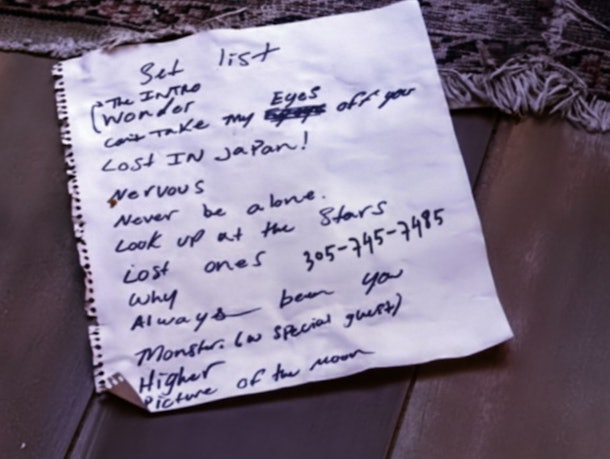 Set list
The INTRO
Wonder
can't TAKE my Eyes off your
LOST IN JaPan!
Nervous
Never be alone.
Look up at the Stars
Lost ones 305-745-7485
Why
Always been you
Monster. (w special guest)
Higher
Picture of the moon